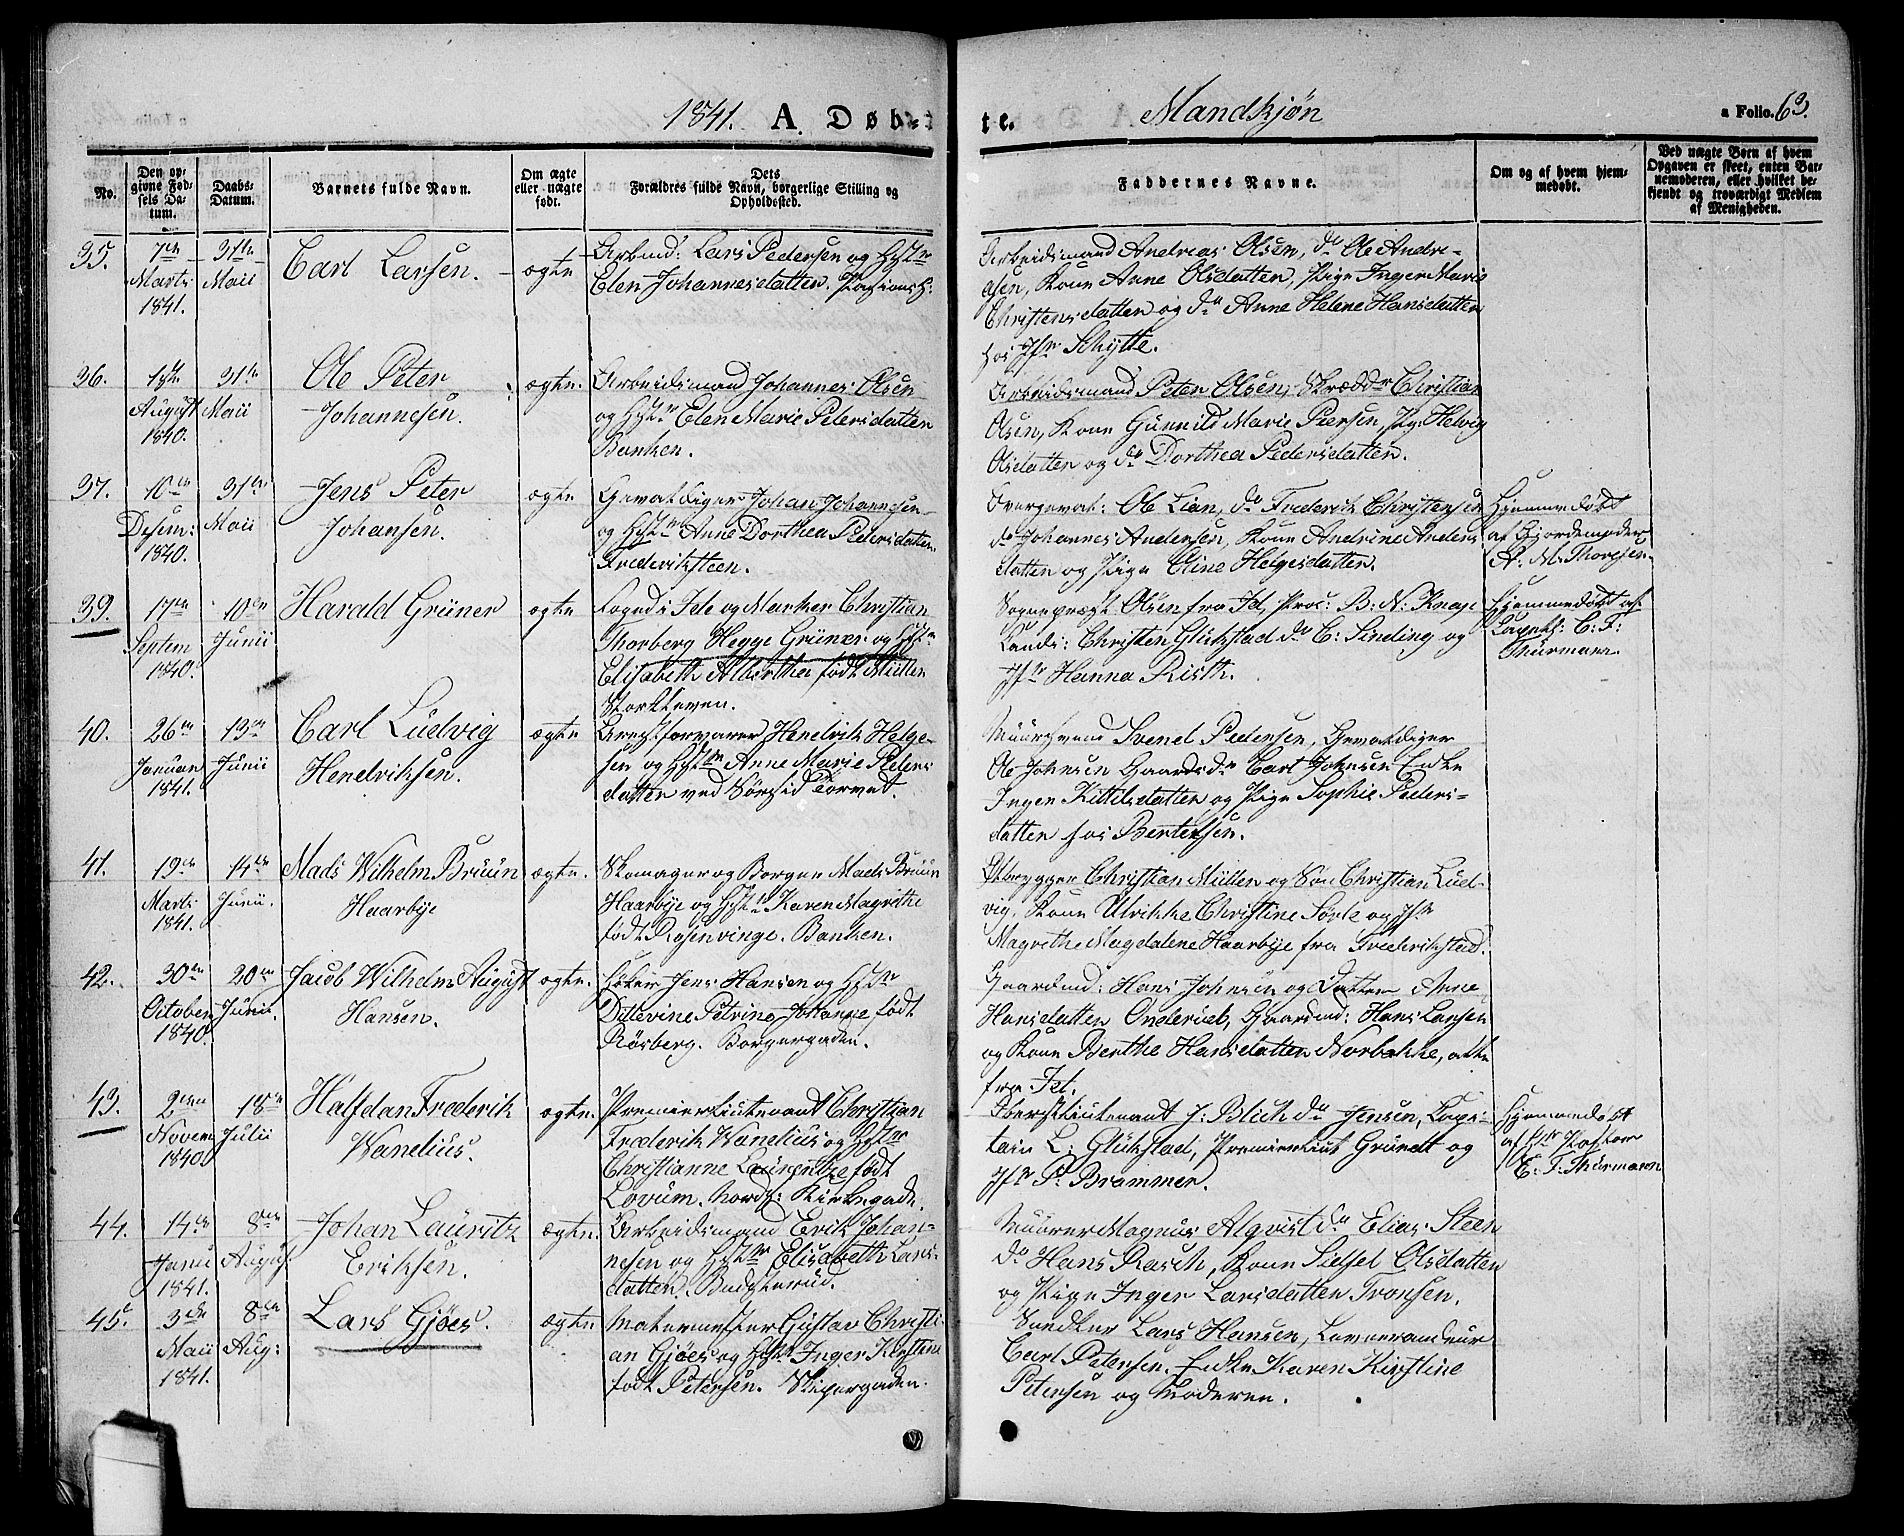 1841. A. Døb-
te. Mandkjøn a Folio. 63.
No.
Den op-
givne Fød-
sels Da-
tum.
Daabs-
Datum.
Barnets fulde Navn.
Om ægte
eller uægte
født.
Dets
Forældres fulde Navn, borgerlige Stilling og
Opholdssted.
Faddernes Navne.
Om og af hvem hjem-
medøbt.
Ved uægte Børn af hvem
Opgaven er skeet, enten Bar-
nemoderen, eller hvilket be-
kjendt og troværdigt Medlem
af Menigheden.
35. 7de Marts 1841. 31te Maii
Carl Larsen.
ægte
Arbmd: Lars Pedersen og Hstr
Elen Johannesdatter.
Arbeidsmand Andreas Olsen, do Ole Andre-
sen, Kone Anne Olsdatter, Pige Inger Marie
Christensdatter og do Anne Helene Hansdatter
hos Jfr Schytte.
36. August 1840. 31te Maii
Ole Peter
Johannesen.
ægte.
Arbeidsmand Johannes Olsen
og Hstr Elen Marie Petersdatter
Banken.
Arbeidsmand Peter Olsen, Skrædder Christian
Olsen, Kone Gunnild Marie Piersen, Pg: Helvig
Olsdatter og do Dorthea Pedersdatter.
37. 10de Desem: 1840. 31te Maii
Jens Peter
Johansen.
ægte
Gevaldiger Johan Johannesen
og Hstr Anne Dorthea Petersdatter
Frederiksteen.
Overgeval: Ole Lian, do Frederik Christensen
do Johannes Andersen, Kone Andrine Anders
datter og Pige Oline Helgesdatter.
Hjemmedøbt
af Gjordemoder
A. M. Thoresen
39. 17de Septem 1840. 10de Junii
Harald Grüner
ægte
Foged i Ide og Marker Christian
Thorberg Hegge Grüner og Hstr
Elisabeth Alberthe født Mütter
Sognepræst Olsen fra Id, Proc: B. N. Knap
Cand: Christen Glükstad do C: Sinding og
Jfr Hanna Risth.
Hjemmedøbt af
C: F:
Thurmann.
40. 26de Januar 1841. 13de Junii
Carl Ludvig
Hendriksen.
ægte
Arestforvarer Hendrik Helge-
sen og Hstr Anne Marie Peders
datter ved Torvet.
Muursvend Svend Pedersen, Gevaldiger
Ole Johnsen Gaardsdr Carl Johnsen Enke
Inger Kittilsdatter og Pige Sophie Peders-
datter hos Berentsen.
41. 19de Marts 1841. 14de Junii.
Mads Wilhelm Bruun
Haarbye
ægte.
Skomager og Borger Mads Bruun
Haarbye og Hstr Karen Magrethe
født Rosenvinge. Banken.
Christian Mütter og Søn Christian Lud-
vig, Kone Ulrikke Christine Sørle og Jfr
Magrethe Magdalene Haarbye fra Fredrikstad.
42. 30te October 1840. 20de Junii.
Jacob Wilhelm August
Hansen.
ægte.
Høker Jens Hansen og Hstr
Ditlevine Petrine Johanne født
Røsberg. Borgergaden.
Gaardmd: Hans Johnsen og Datter Anne
Hansdatter Onderuel, Gaardmd: Hans Larsen
og Kone Berthe Hansdatter Norbakke, alle
fra Id.
43. 2den Novem 1840. 18de Julii
Halfdan Frederik
Wanelius.
ægte.
Premierlieutenant Christian
Frederik Wanelius og Hstr
Christianne Laurentze født
Lovum. Nordf: Kirkegade.
Oberstlieutenant J: Blich do Jensen, Capi-
tain L: Glükstad, Premierlieut Grundt og
Jfr P: Brammer.
Hjemmedøbt
af Hr Pastor
C: F: Thurmann
44. 14de Janu 1841. 8de August
Johan Lauritz
Eriksen.
ægte.
Arbeidsmand Erik Johan-
nesen og Hstr Elisabeth Lars-
datter, Budsterud.
Muurer Magnus Alqvist do Elias Steen
do Hans Rasch, Kone Sidsel Olsdatter
og Pige Inger Larsdatter Tronsen.
45. 3die Maii 1841. 8de Aug:
Lars Gjøes.
ægte
Malermester Gustav Christi-
an Gjøes og Hstr Inger Kirstine
født Petersen. Skipergaden.
Snedker Lars Hansen,
Carl Petersen. Enke Karen Kirstine
Petersen og Moderen.